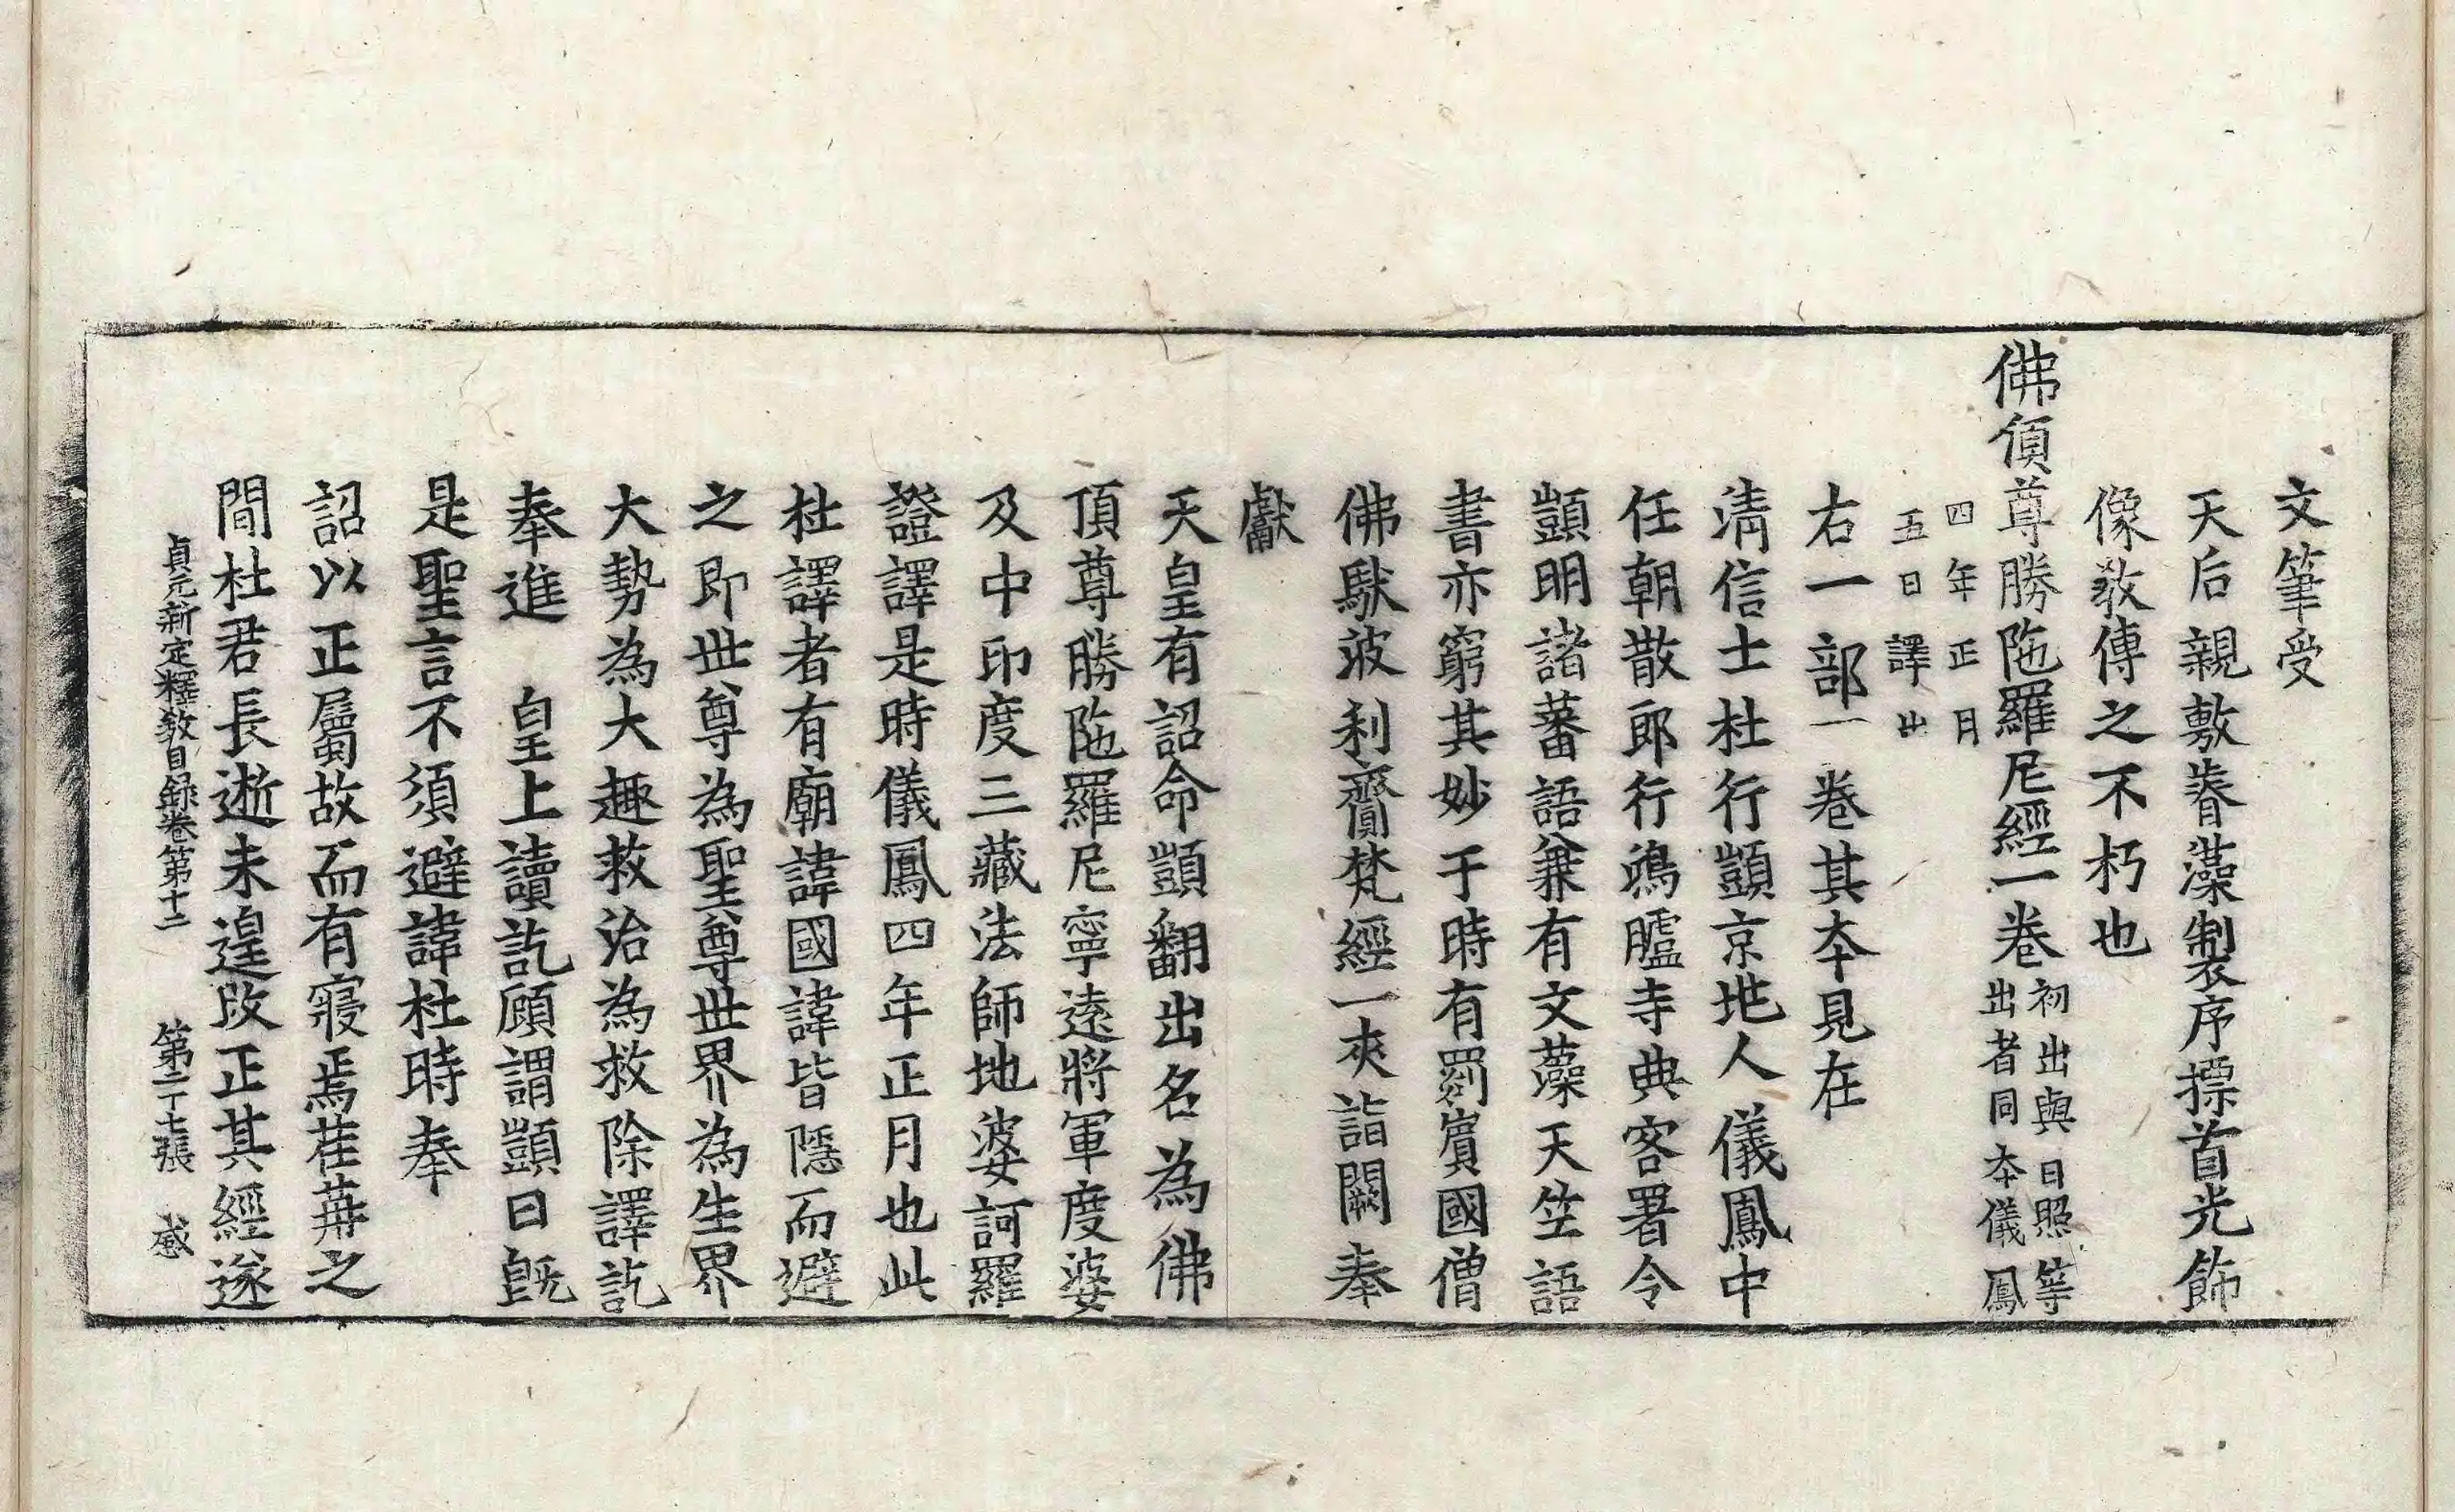 文筆受
天后親敷睿藻製序摽首光飾
像教傳之不朽也
佛頂尊勝陁羅尼經一卷
初出與日照等
出者同本儀鳳
四年正月
五日譯出
右一部一卷其本見在
淸信士杜行顗京地人儀鳳中
任朝散郎行鴻臚寺典客署令
顗明諸蕃語兼有文藻天笁語
書亦窮其妙于時有罽賓國僧
佛䭾波利齎梵經一夾詣闕奉
獻
天皇有詔命顗翻出名為佛
頂尊勝陁羅尼寧遠將軍度婆
及中印度三藏法師地婆訶羅
證譯是時儀鳳四年正月也此
杜譯者有廟諱國諱皆隱而避
之即世尊為聖尊世界為生界
大勢為大趣救治為救除譯訖
奉進 皇上讀訖顧謂顗曰旣
是聖言不須避諱杜時奉
詔以正屬故而有寢焉荏苒之
間杜君長逝未遑改正其經遂
貞元新定釋教目錄卷第十二 第二十七張 感